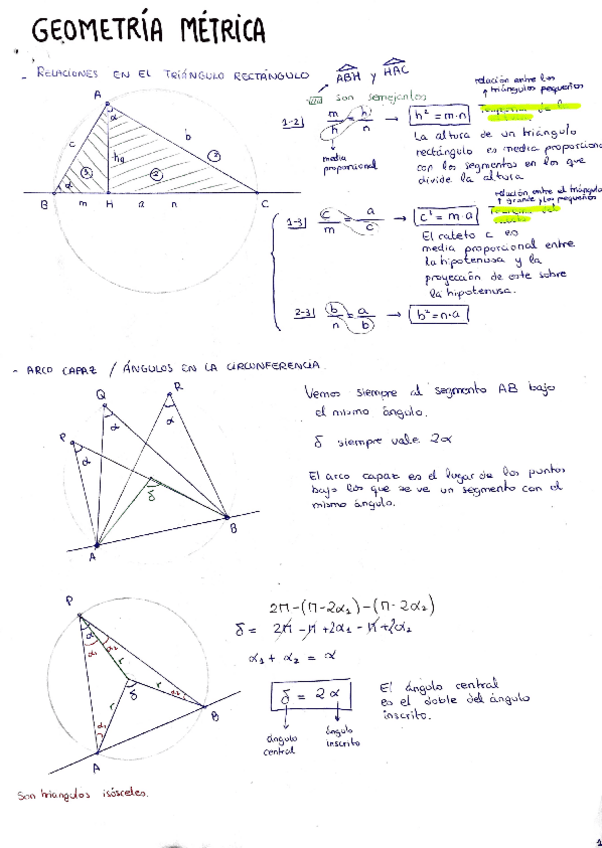 GEOMETRÍA MÉTRICA
- RELACIONES EN EL TRIÁNGULO RECTÁNGULO
ABH y HAC
son semejantes
A
α
c
b
hₐ
3
2
1
α
B
m
H
a
n
C
1-2|
m/h = h/n → h² = m·n
media
proporcional
relación entre los
triángulos pequeños
La altura de un triángulo
rectángulo es media proporcional
con los segmentos en los que
divide la altura
1-3|
c/m = a/c → c² = m·a
relación entre el triángulo
grande y los pequeños
El cateto c es
media proporcional entre
la hipotenusa y la
proyección de este sobre
la hipotenusa.
2-3|
b/n = a/b → b² = n·a
- ARCO CAPAZ / ÁNGULOS EN LA CIRCUNFERENCIA.
Q
R
P
α
α
α
δ
A
B
Vemos siempre al segmento AB bajo
el mismo ángulo.
δ siempre vale 2α
El arco capaz es el lugar de los puntos
bajo los que se ve un segmento con el
mismo ángulo.
P
α
α₁
α₂
r
r
r
δ
α₁
α₂
A
B
2Π-(Π-2α₁)-(Π-2α₂)
δ = 2Π-Π+2α₁-Π+2α₂
α₁ + α₂ = α
δ = 2α
ángulo
central
ángulo
inscrito
El ángulo central
es el doble del ángulo
inscrito.
Son triangulos isósceles.
1